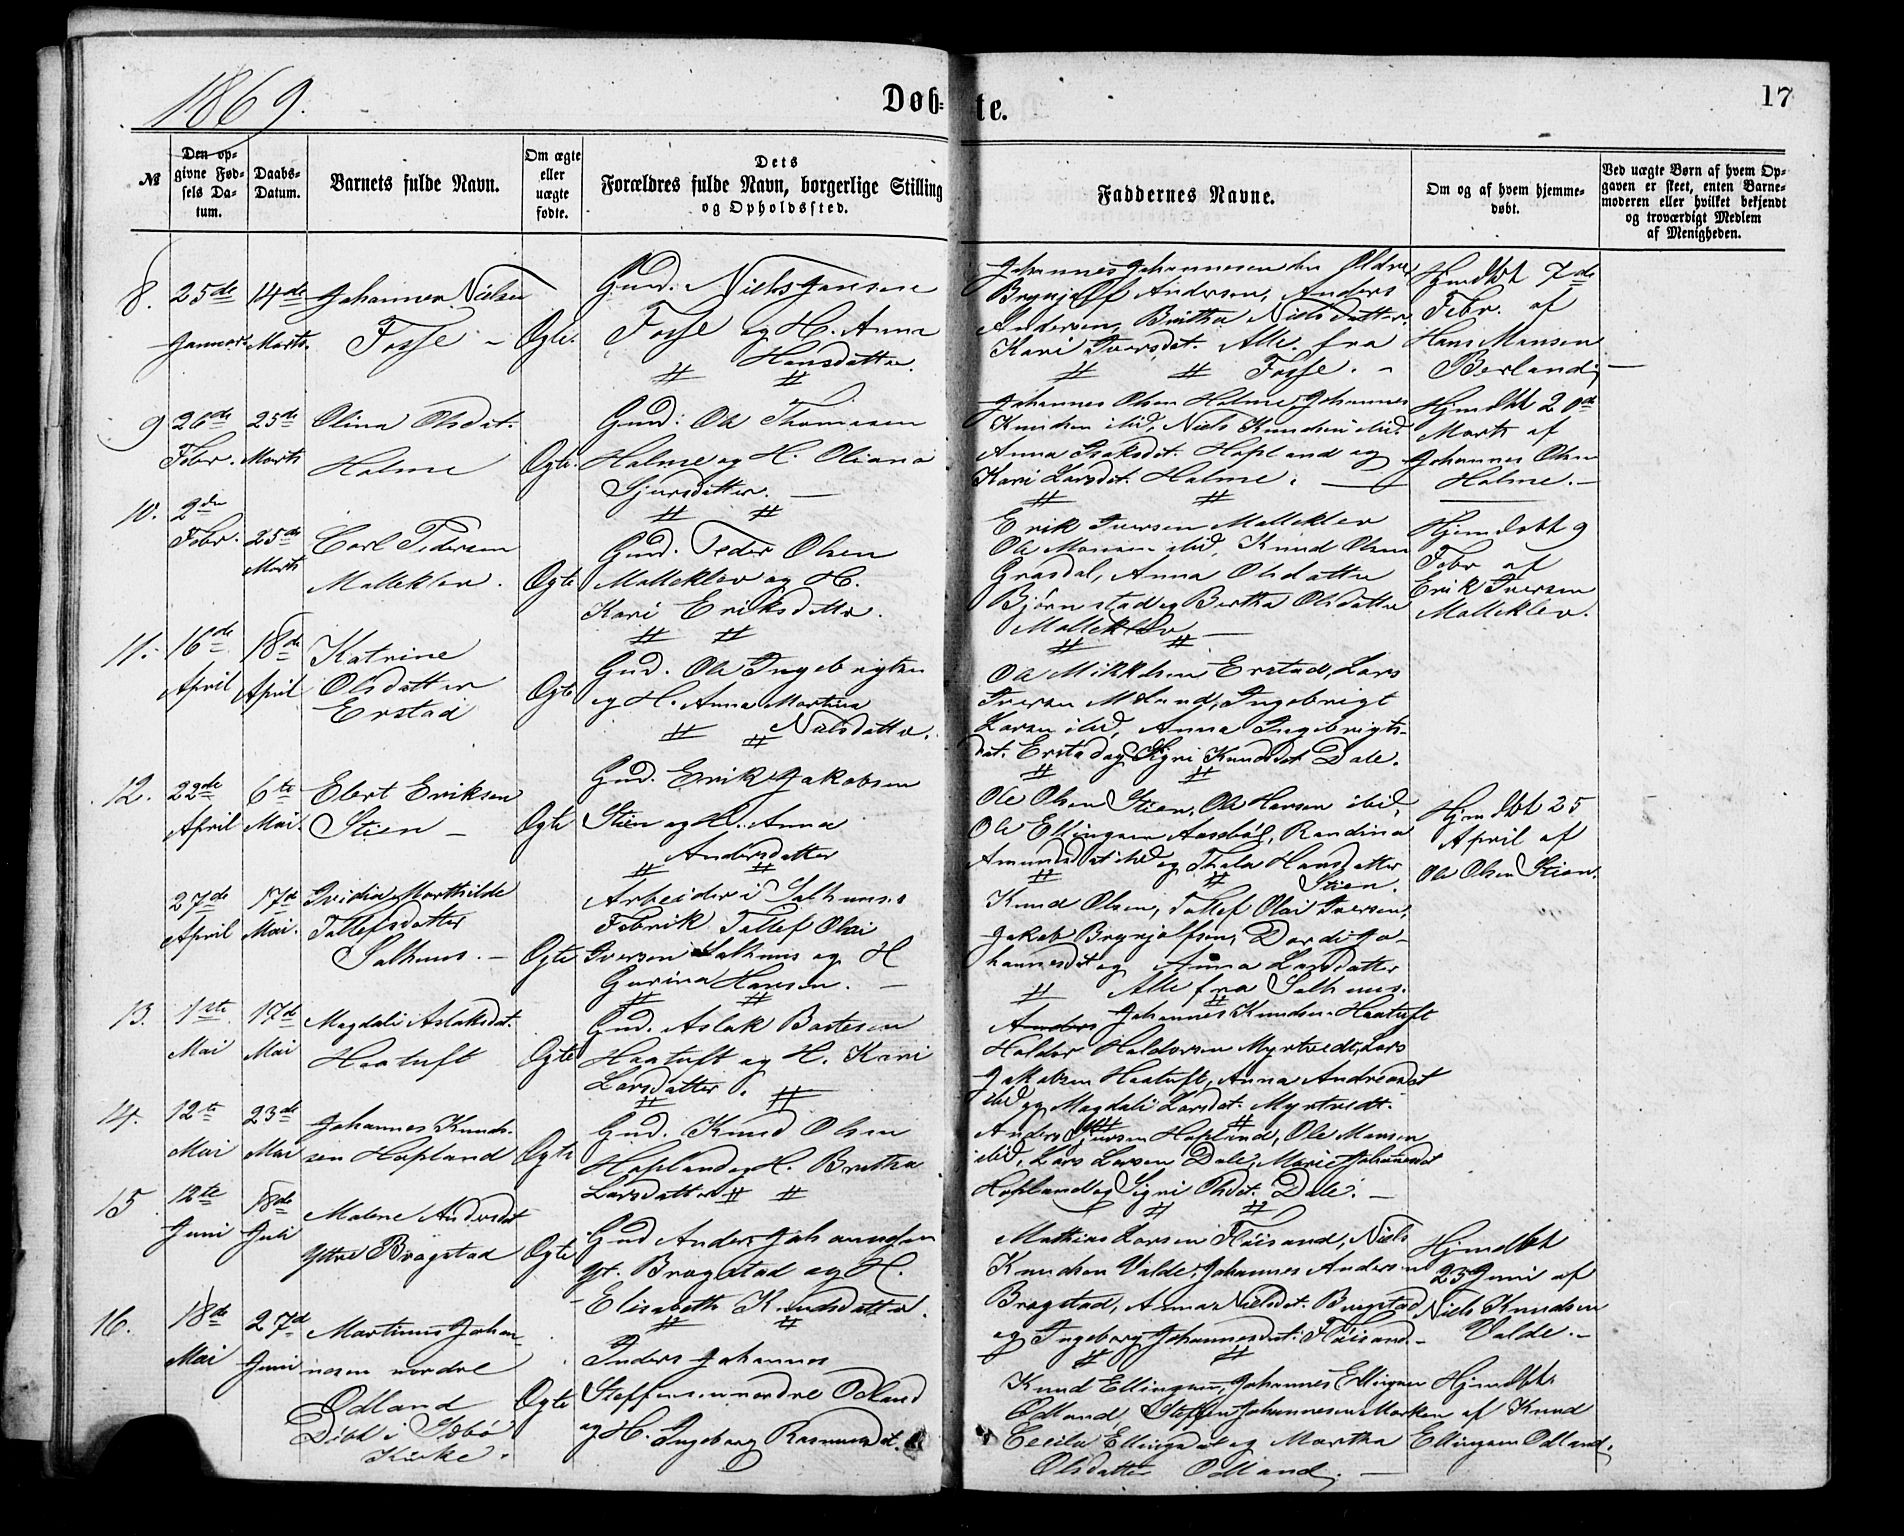 1869.
Døb-
te.
17
№
Den op-
givne Fød-
sels Da-
tum.
Daabs-
Datum.
Barnets fulde Navn.
Om ægte
eller
uægte
fødte.
Dets
Forældres fulde Navn, borgerlige Stilling
og Opholdssted.
Faddernes Navne.
Om og af hvem hjemme-
døbt.
Ved uægte Børn af hvem Op-
gaven er skeet, enten Barne-
moderen eller hvilket bekjendt
og troværdigt Medlem
af Menigheden.
8.
25de
Januar
14de
Marts.
Johannes Nielsen
Fosse –
Ægte.
Gmd. Niels Jansen
Fosse og H. Anna
Hansdatter.
Johannes Johannesen
Brynjolf Andersen, Anders
Andersen, Britha Nielsdatter.
Kari Iversdat. Alle fra
Fosse. –
Hjmdbt 7de
Febr. af
Hans Monsen
Berland
9
26de
Febr.
25de
Marts
Olina Olsdat.
Holme
Ægte.
Gmd: Ole Thomasen
Holme og H. Oliana
Sjursdatter. —
Johannes Olsen Holme, Johannes
Knudsen ibid, Niels Knudsen ibid.
Anna Isaksdat. Hopland og
Kari Larsdat. Holme.
Hjmdbt 20de
Marts af
Johannes Olsen
Holme. –
10.
2den
Febr.
25de
Marts
Carl Pedersen
Molleklev.
Ægte
Gmd. Peder Olsen
Molleklev og H.
Kari Eriksdatter.
Erik Iversen Molleklev
Ole Monsen ibid, Knud Olsen
Grasdal, Anna Olsdatter
Bjørnstad og Bertha Olsdatter
Molleklev —
Hjemdøbt 9
Febr af
Erik Iversen
Molleklev.
11.
16de
April
18de
April
Katrine
Olsdatter
Erstad
Ægte
Gmd. Ole Ingebrigtsen
og H. Anna Martina
Nielsdatter.
Ole Mikkelsen Erstad, Lars
Iversen Mland, Ingebrigt
Larsen ibid, Anna Ingebrigts-
dat. Erstad og Sigri Knudsdat Dale.
12.
22de
April
6te
Mai.
Elert Eriksen
Stien –
Ægte
Gmd. Erik Jakobsen
Stien og H. Anna
Andersdatter
Ole Olsen Stien, Ole Hansen ibid,
Ole Ellingsen Aasebø, Randina
Amundsdat ibid og Thala Hansdatter
Stien.
Hjmdbt 25
April af
Ole Olsen Stien.
27de
April
17de
Mai.
Mathilde
Tollefsdatter
Salhuus. –
Ægte
Arbeider i Salhuus
Fabrik Tollef Olai
Iversen Salhuus og H
Gurina Hansen. –
Knud Olsen, Tollef Olai Iversen,
Jakob Brynjolfsen, Dordi Jo-
hannesdat og Anna Larsdatter
Alle fra Salhuus.
13.
1ste
Mai
17de
Mai
Magdali Aslaksdat.
Haatuft
Ægte
Gmd. Aslak Bastesen
Haatuft og H. Kari
Larsdatter.
Anders Johannes Knudsen Haatuft
Haldor Haldorsen Myrtvedt, Lars
Jakobsen Haatuft, Anna Andreasdat
ibid og Magdali Larsdat. Myrtvedt.
14.
12te
Mai
23de
Mai
Johannes Knud-
sen Hopland
Ægte
Gmd. Knud Olsen
Hopland og H. Britha
Larsdatter
Anders Sjursen Hopland, Ole Monsen
ibid, Lars Larsen Dale, Marie Johannesdat
Hopland og Sigri Olsdat. Dale. –
15
12te
Juni
18de
Juli
Malene Andersdat
Yttre Bragstad
Ægte
Gmd Anders Johannesen
yt. Bragstad og H.
Elisabeth Knudsdatter.
Mathias Larsen Fløisand, Niels
Knudsen Valde. Johannes Andersen
Bragstad, Anna Nielsdat. Bragstad
og Ingeborg Johannesdat. Fløisand –
Hjmdbt
23 Juni af
Niels Knudsen
Valde. –
16.
18de
Mai
27de
Juni
Martinus Johan-
nesen nordre
Odland
Døbt i Sæbø
Kirke.
Ægte
Inders Johannes
Steffensen nordre Odland
og H. Ingeborg Rasmusdat.
Knud Ellingsen, Johannes Ellingsen
Odland, Steffen Johannesen Marken
Cecilie Ellingsdat og Martha
Olsdatter Odland. —
Hjmdbt.
af Knud
Ellingsen Odland.